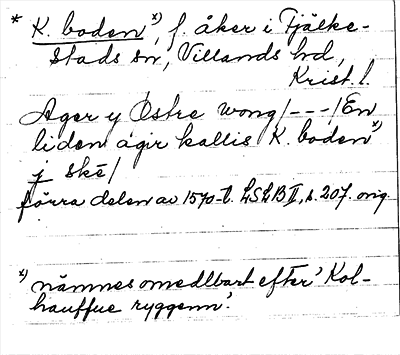 * K. boden x), f. åker i Fjälke-
stads sn, Villands hd,
Krist. l.
Ager y Østre wong/---/En
liden ágir kallis K. boden x)
j skē/
förra delen av 1570-t. LSLB II, s. 207. orig
x) nämnes omedlbart efter 'Kol-
hauffue ryggenn'.